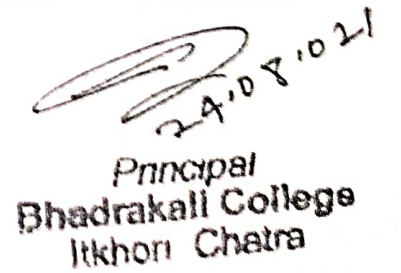 24.08.021
Principal
Bhadrakali College
Itkhori Chatra